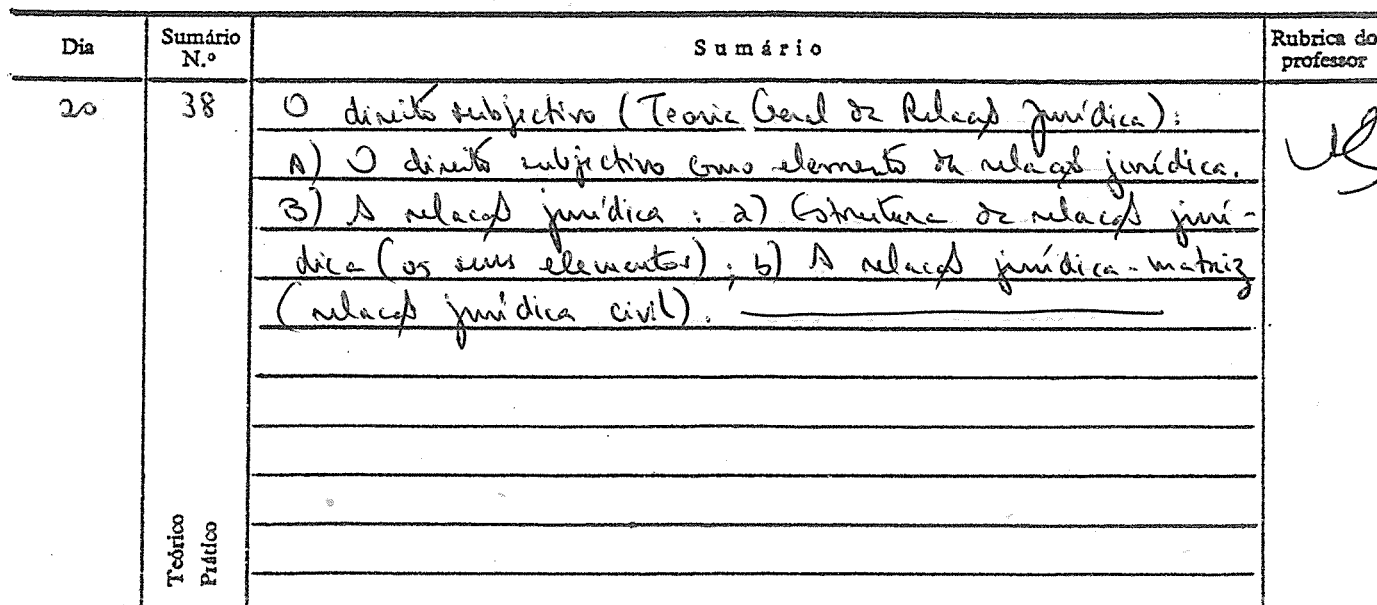 Dia
Sumário N.º
Sumário
Rubrica do professor
20
38
O direito subjectivo (Teoria Geral da Relação Jurídica):
A) O direito subjectivo como elemento da relação jurídica.
B) A relação jurídica: a) Estrutura da relação jurí-
dica (os seus elementos); b) A relação jurídica-matriz
(relação jurídica civil).
Teórico
Prático